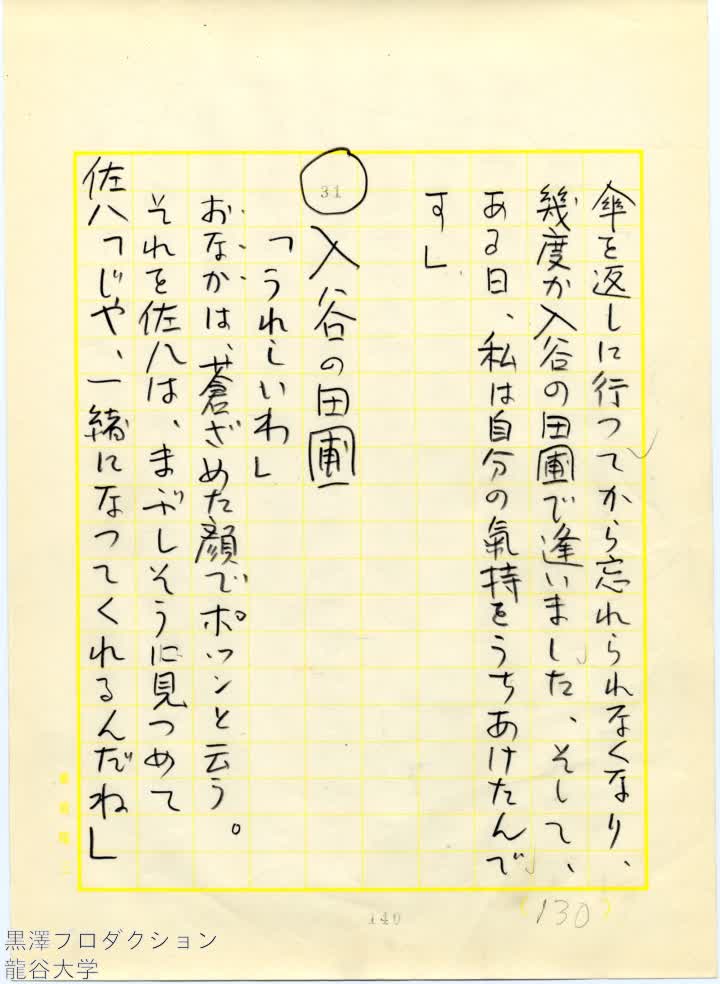 傘を返しに行つてから忘れられなくなり、
幾度か入谷の田圃で逢いました、そして、
ある日、私は自分の氣持をうちあけたんで
す」
31
入谷の田圃
「うれしいわ」
おなかは、蒼ざめた顔でポツンと云う。
それを佐八は、まぶしそうに見つめて
佐八「じや、一緒になつてくれるんだね」
140
(130)
黒澤プロダクション
龍谷大学